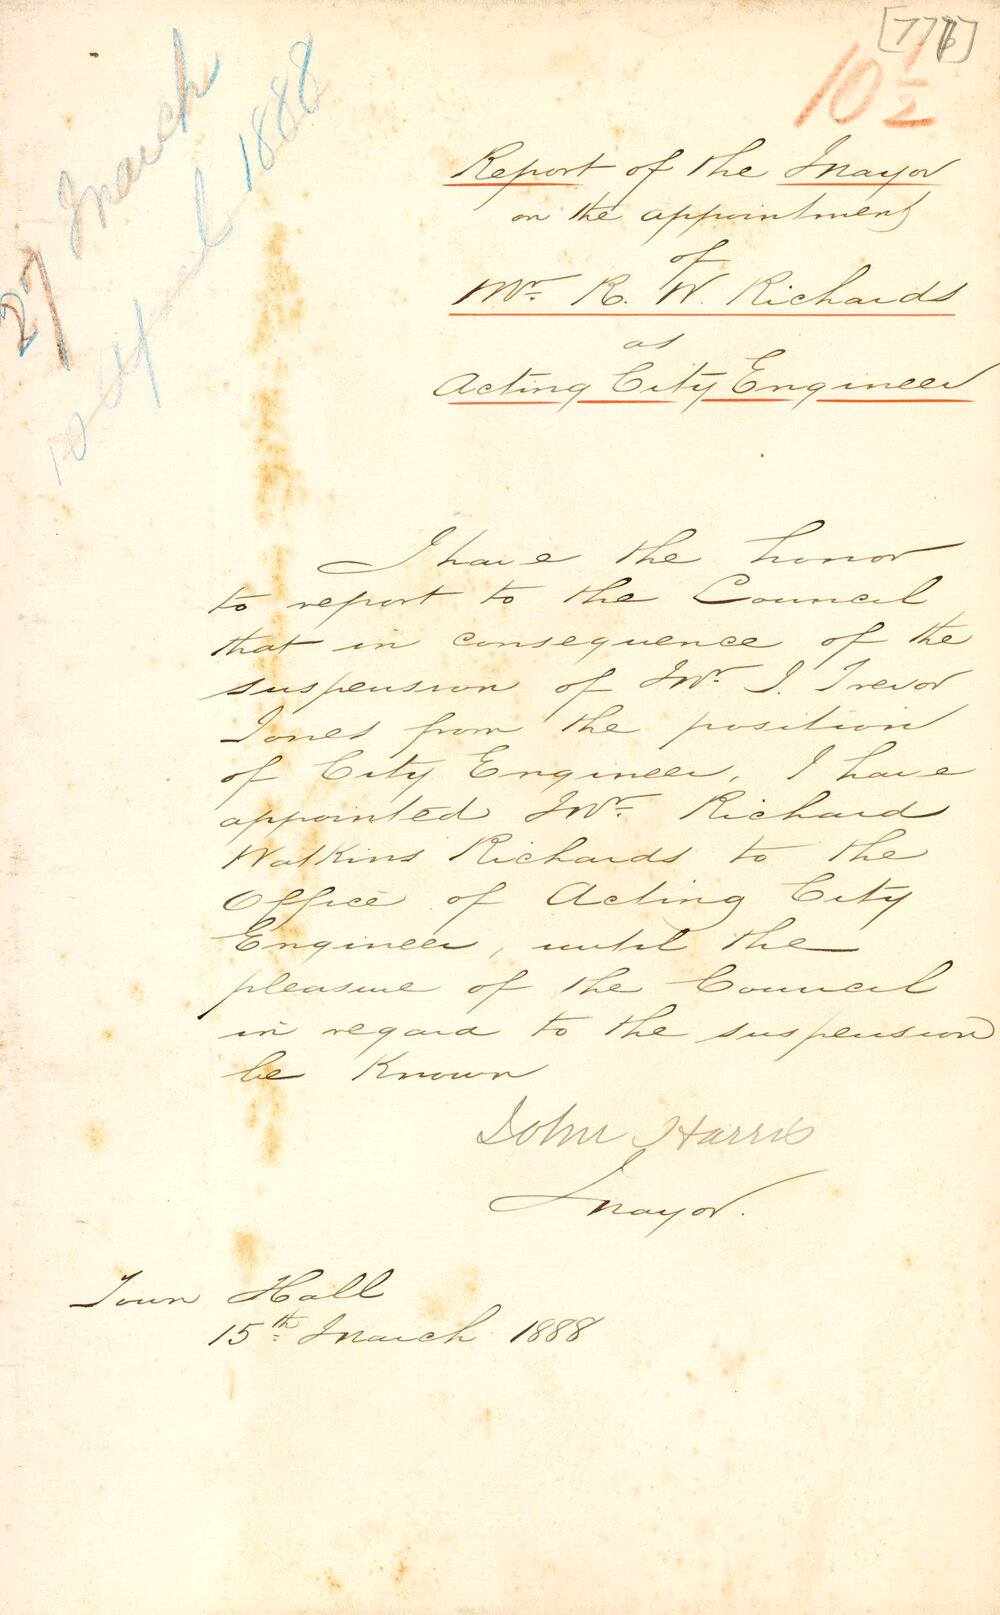 27 March
10 April 1888
10 1/2
Report of the Mayor
on the appointment
of
Mr. R. W. Richards
as
Acting City Engineer
I have the honor
to report to the Council
that in consequence of the
suspension of Mr. J. Trevor
Jones from the position
of City Engineer, I have
appointed Mr. Richard
Watkins Richards to the
Office of Acting City
Engineer, until the
pleasure of the Council
in regard to the suspension
be known
John Harris
Mayor.
Town Hall
15th March 1888